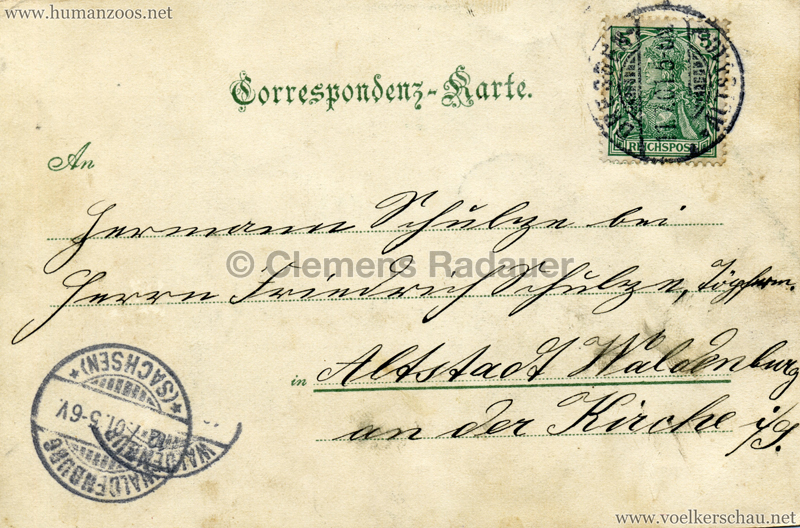 www.humanzoos.net
Correspondenz-Karte.
REICHSPOST
An
Hermann Schulze bei
© Clemens Radauer
Herrn Friedrich Schulze, Töpferm.
in Altstadt Waldenburg
an der Kirche i/S.
WALDENBURG
*(SACHSEN)*
7.01.5-6V.
www.voelkerschau.net